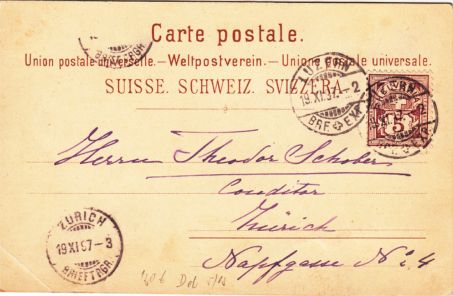 Carte postale.
Union postale universelle. – Weltpostverein. – Unione postale universale.
SUISSE. SCHWEIZ. SVIZZERA.
BRIEFTRGR.
LUZERN
19.XI.97.–2
BRF. EXP.
LUZERN
5
BRF. EXP.
Herrn Theodor Schober
Conditor
Zürich
Napfgasse No 4
ZÜRICH
19 XI 97–3
BRIEFTRGR.